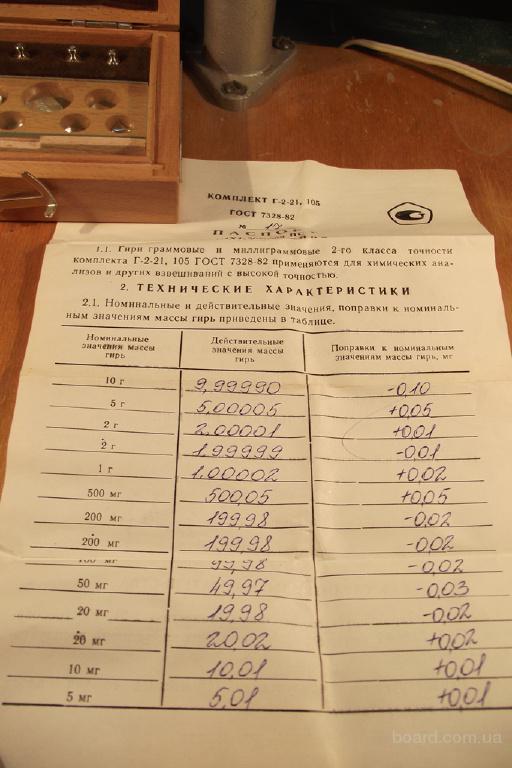 КОМПЛЕКТ Г-2-21, 105
ГОСТ 7328-82
№
ПАСПО
1.1. Гири граммовые и миллиграммовые 2-го класса точности
комплекта Г-2-21, 105 ГОСТ 7328-82 применяются для химических ана-
лизов и других взвешиваний с высокой точностью.
2. ТЕХНИЧЕСКИЕ ХАРАКТЕРИСТИКИ
2.1. Номинальные и действительные значения, поправки к номиналь-
ным значениям массы гирь приведены в таблице.
Номинальные значения массы гирь Действительные значения массы гирь Поправки к номинальным значениям массы гирь, мг
10 г 9,99990 -0,10
5 г 5,00005 +0,05
2 г 2,00001 +0,01
2 г 1,99999 -0,01
1 г 1,00002 +0,02
500 мг 500,05 +0,05
200 мг 199,98 -0,02
200 мг 199,98 -0,02
100 мг 99,98 -0,02
50 мг 49,97 -0,03
20 мг 19,98 -0,02
20 мг 20,02 +0,02
10 мг 10,01 +0,01
5 мг 5,01 +0,01
board.com.ua